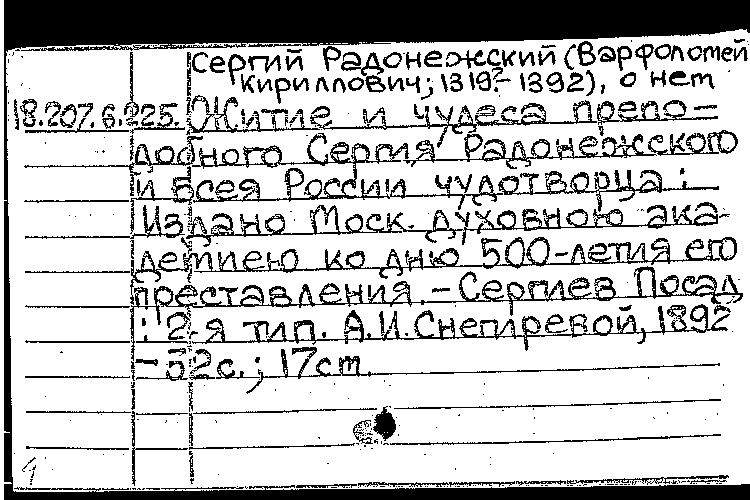 Сергий Радонежский (Варфоломей
Кириллович; 1319?-1392), о нем
18.207.6.225. Житие и чудеса препо-
добного Сергия Радонежского
и всея России чудотворца :
Издано Моск. духовною ака-
демиею ко дню 500-летия его
преставления. - Сергиев Посад
: 2-я тип. А.И.Снегиревой, 1892
- 52с.; 17см.